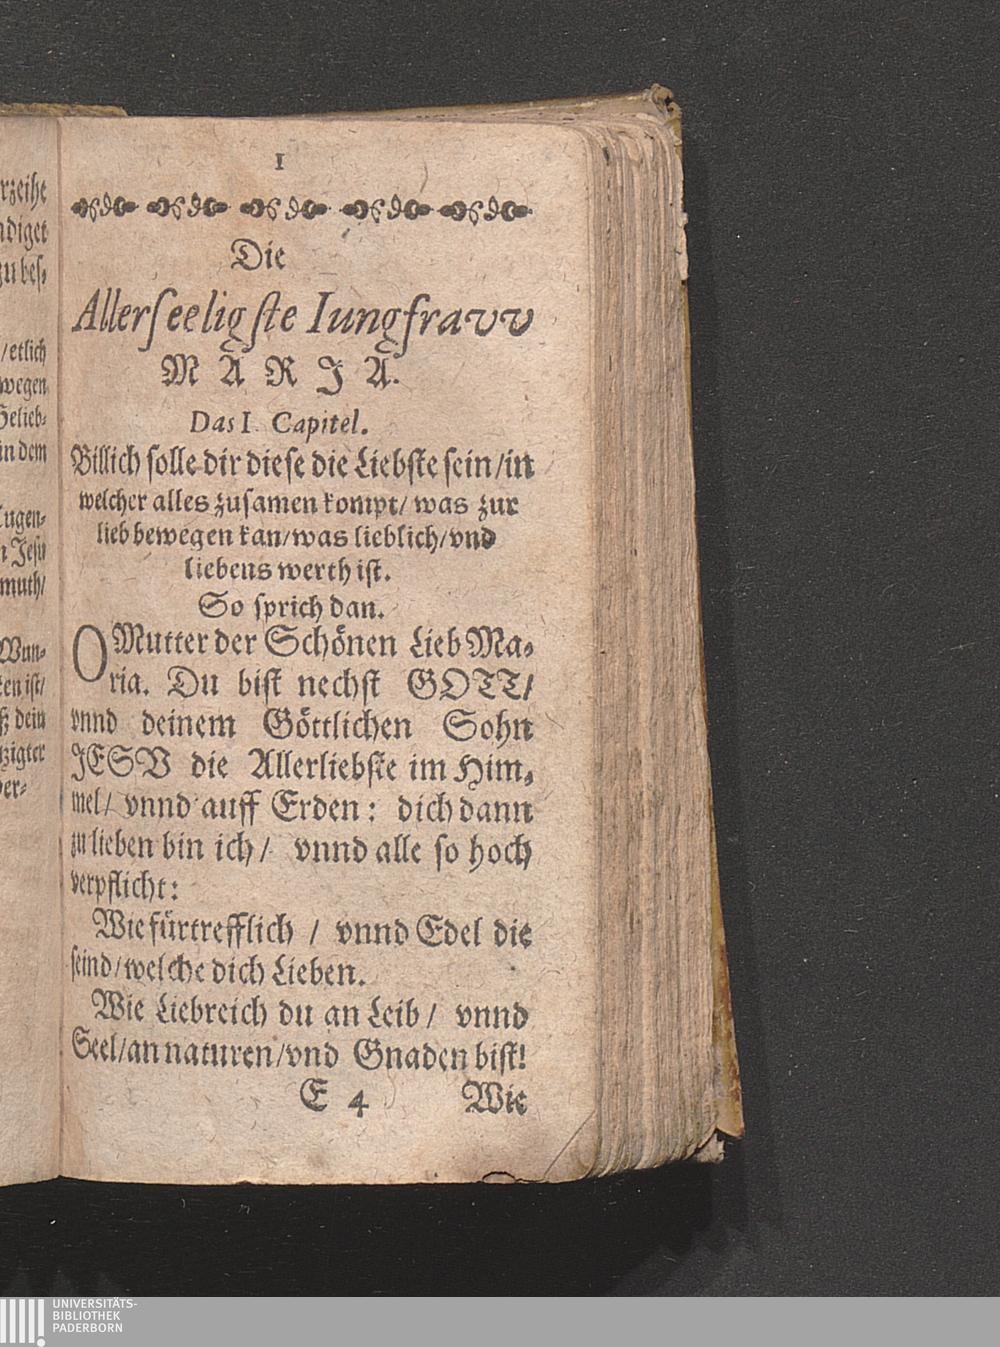 rzeihe
ndiget
zu bes⸗
/etlich
wegen
Gelieb⸗
in dem
Tugen⸗
n Jesu
muth/
Wun⸗
ten ist/
ß dein
nzigter
1
Die
Allerseeligste Iungfravv
MARIA.
Das I. Capitel.
Billich solle dir diese die Liebste sein/in
welcher alles zusamen kompt/ was zur
lieb bewegen kan/was lieblich/vnd
liebens werth ist.
So sprich dan.
O Mutter der Schönen Lieb Ma⸗
ria. Du bist nechst GOTT/
vnnd deinem Göttlichen Sohn
JESV die Allerliebste im Him⸗
mel/ vnnd auff Erden: dich dann
zu lieben bin ich/ vnnd alle so hoch
verpflicht:
Wie fürtrefflich / vnnd Edel die
seind/welche dich Lieben.
Wie Liebreich du an Leib/ vnnd
Seel/an naturen/vnd Gnaden bist!
E 4 Wie
UNIVERSITÄTS-
BIBLIOTHEK
PADERBORN